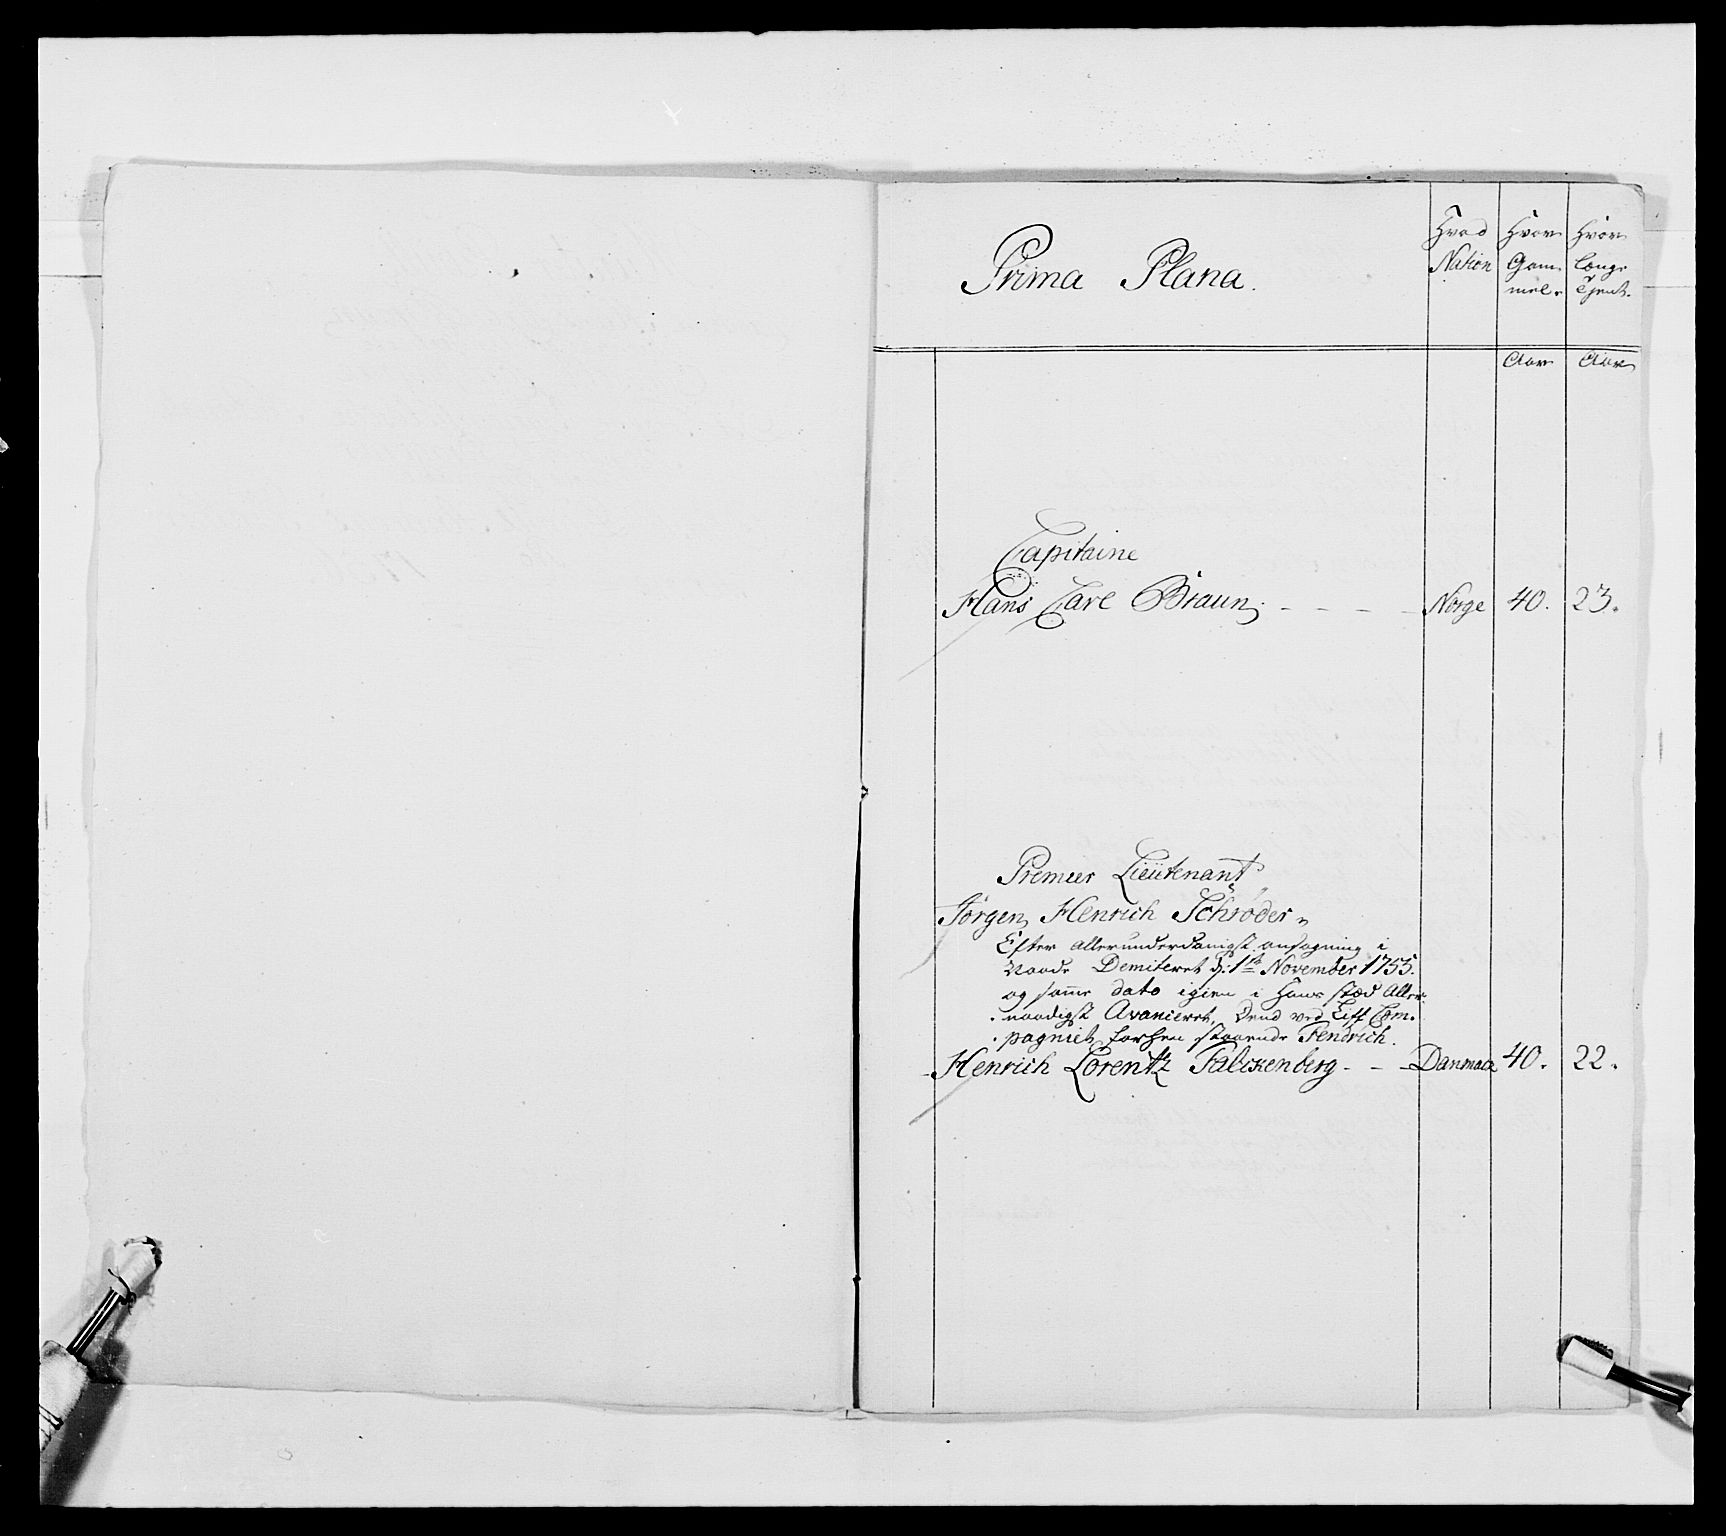 Prima Plana.
Hvad Nation
Hvor Gam-mel.
Hvor Længe Tjent.
Aar
Aar
Capitaine
Hans Carl Braun, - - - - Norge 40. 23.
Premier Lieütenant
Jørgen Henrich Schrøder,
Efter allerunderdanigst ansøgning i
Naade Demiteret d: 1ste November 1755.
og samme dato igien i Hans stæd Aller-
naadigst Avanceret, Dend ved Liff Com-
pagniet forhen staaende Fendrich.
Henrich Lorentz Falckenberg - - - Danmarck 40. 22.